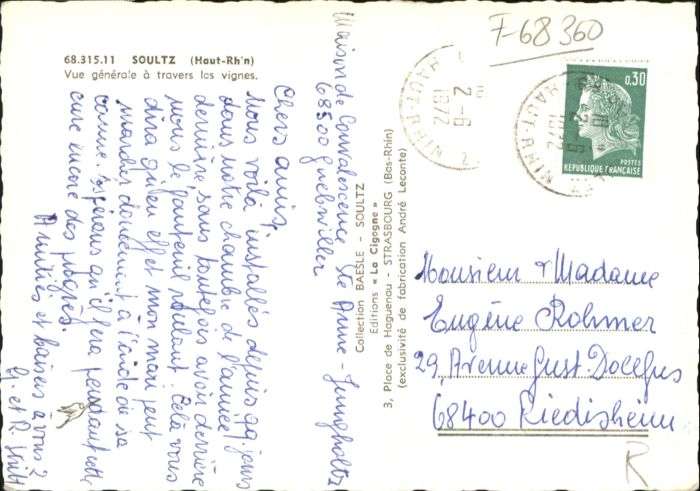 F-68360
68.315.11 SOULTZ (Haut-Rhin)
Vue générale à travers les vignes.
Maison de Convalescence Ste Anne - Jungholtz
68500 Guebwiller
Chers amis,
Nous voilà installés depuis qq. jours
dans notre chambre de l'année
dernière sans toutefois avoir derrière
nous le fauteuil roulant. Celà vous
dira qu'en effet mon mari peut
marcher doucement à l'aide de sa
canne. Espérons qu'il fera pendant cette
cure encore des progrès.
Amitiés et baisers à vous 2
G. et R.
Collection BAESLE - SOULTZ
Editions « La Cigogne »
3, Place de Haguenau - STRASBOURG (Bas-Rhin)
(exclusivité de fabrication André Leconte)
HAUT-RHIN
2-6
1972
0,30
POSTES
REPUBLIQUE FRANÇAISE
HAUT-RHIN
2-6
1972
Monsieur & Madame
Eugène Rohmer
29, Avenue Gust. Dollfus
68400 Riedisheim
R